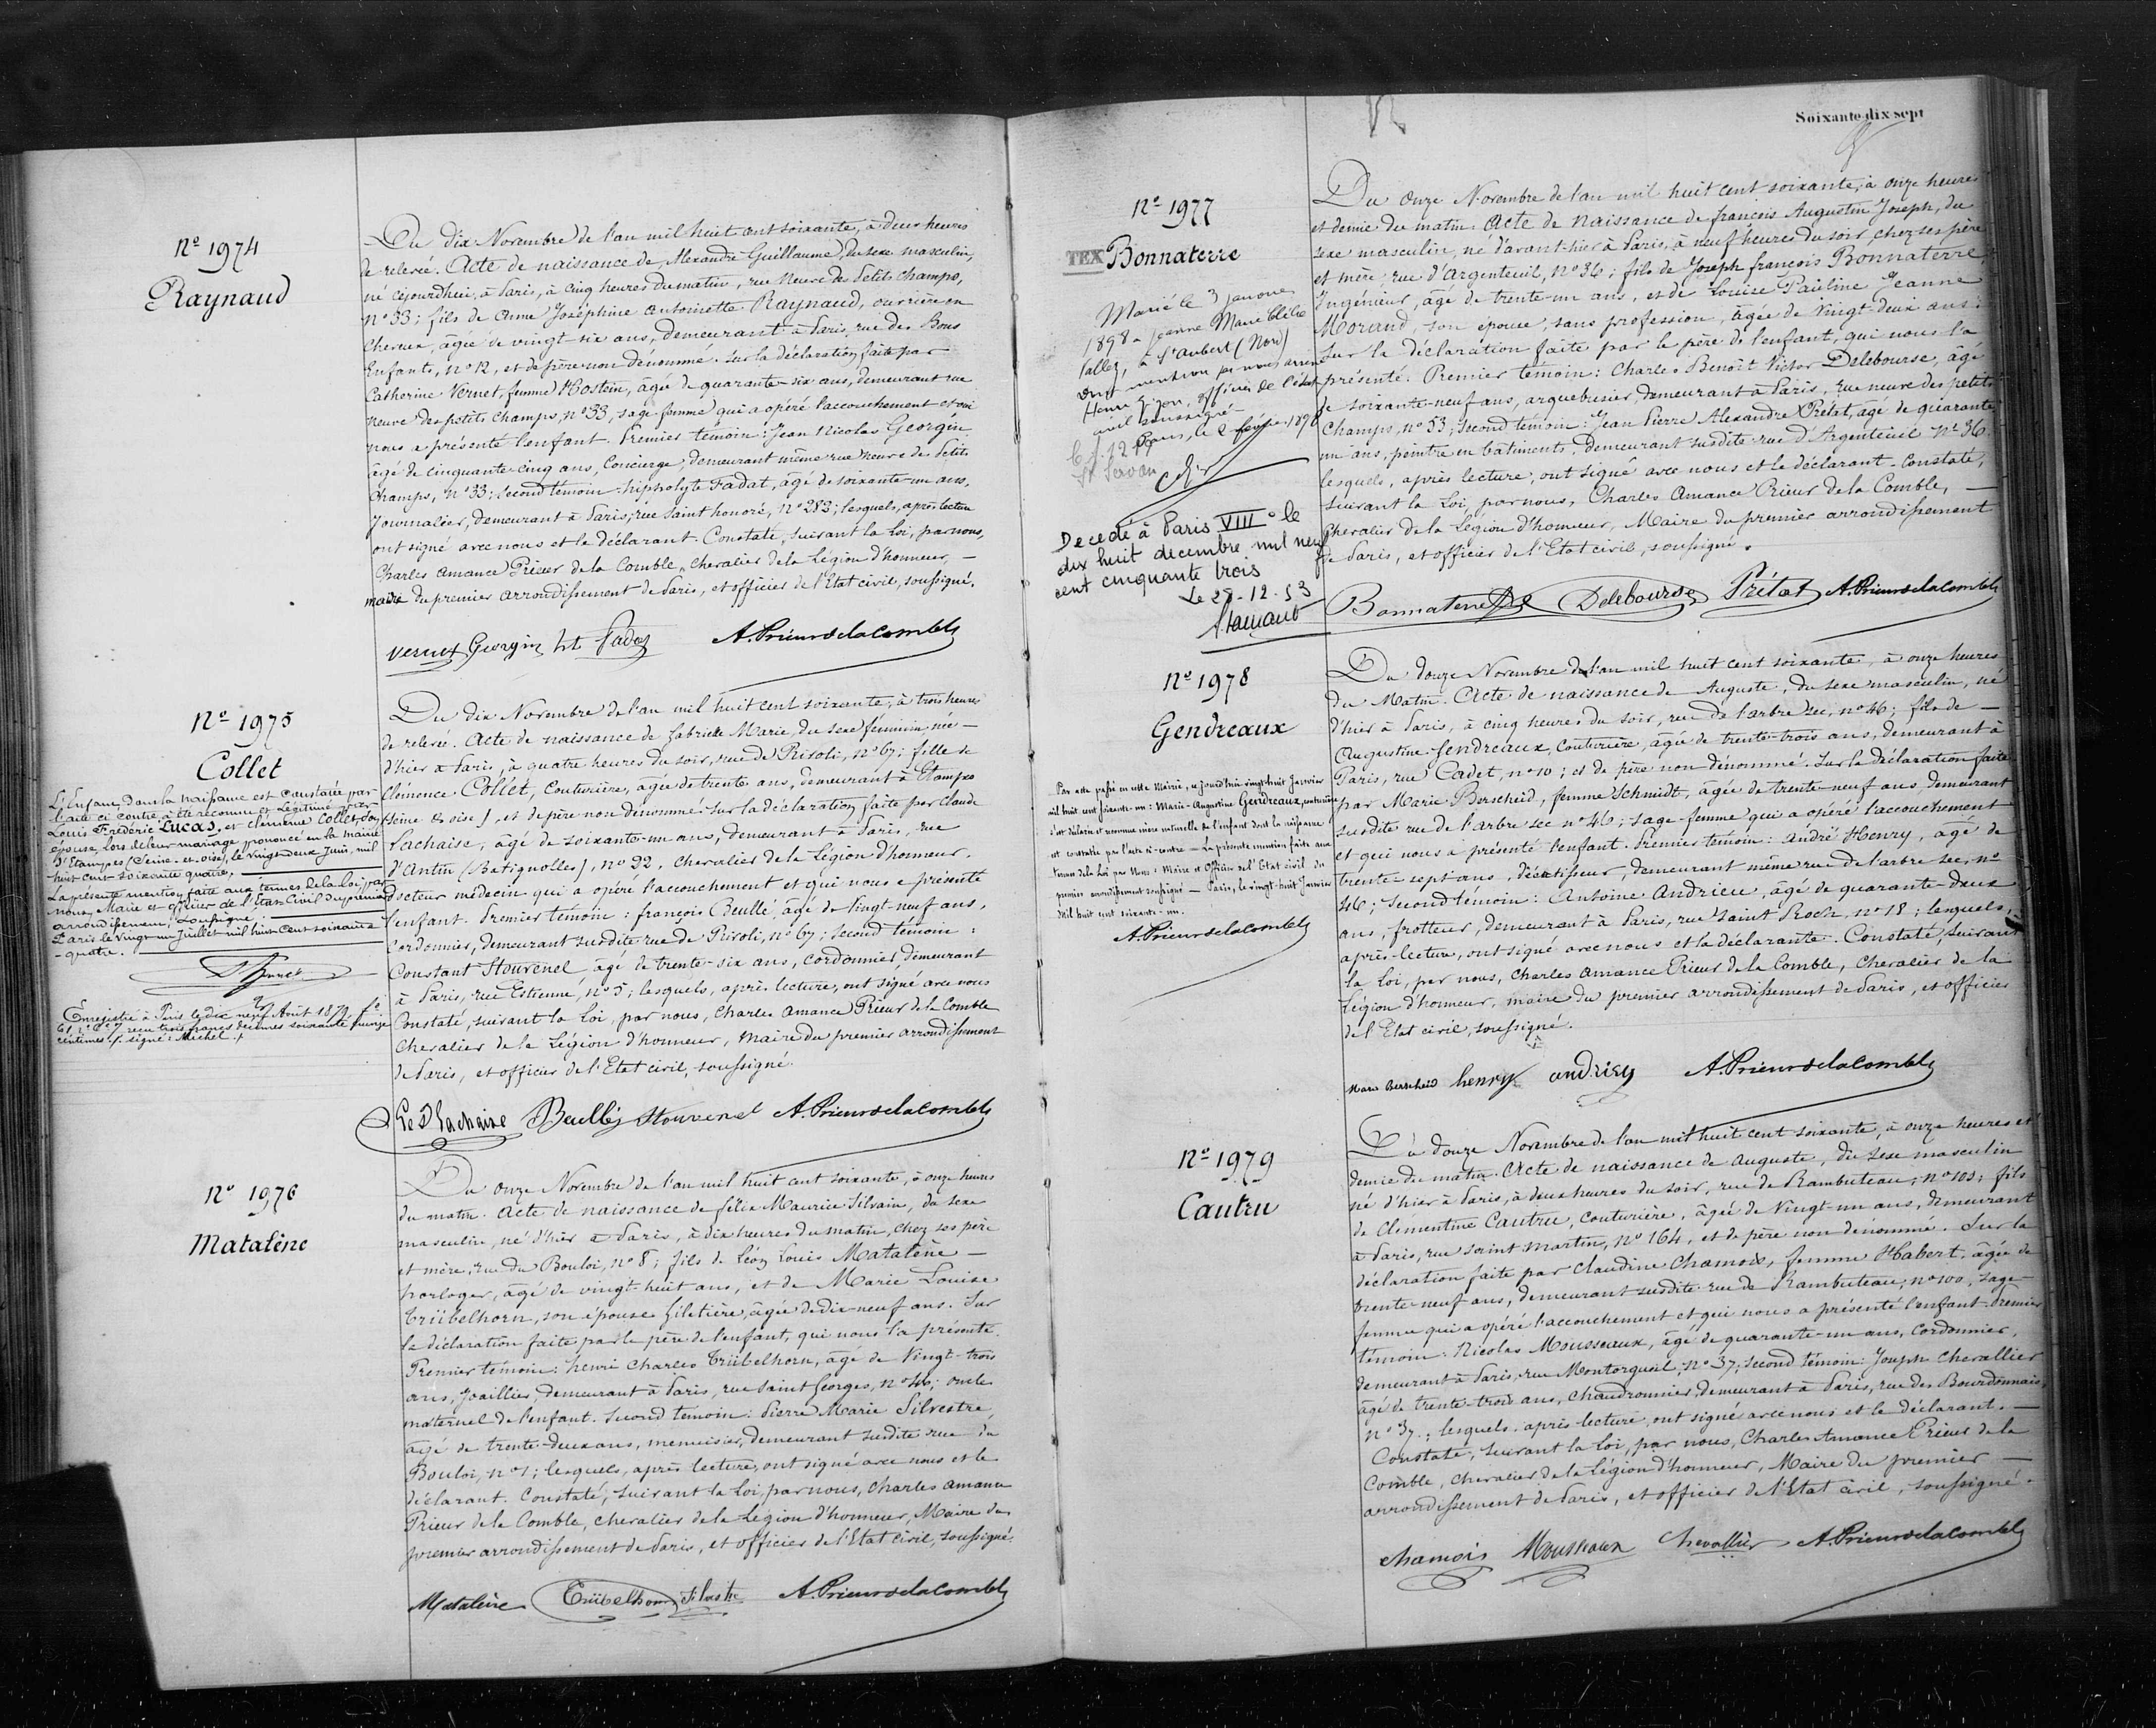 Nº 1974
Raynaud
Du dix Novembre de l'an mil huit cent soixante, à deux heures
de relevée. Acte de naissance de Alexandre Guillaume, du sexe masculin,
né cejourd'hui, à Paris, à cinq heures du matin, rue Neuve des Petits Champs,
nº 33; fils de Anne Joséphine Antoinette Raynaud, ouvrière en
cheveux, âgée de vingt-six ans, demeurant à Paris, rue des Bons
Enfants, nº 12, et de père non dénommé. Sur la déclaration faite par
Catherine Vernet, femme Hostein, âgée de quarante-six ans, demeurant rue
neuve des petits champs, nº 33, sage femme qui a opéré l'accouchement et qui
nous a présenté l'enfant. Premier témoin: Jean Nicolas Georgin
âgé de cinquante-cinq ans, Concierge, demeurant même rue neuve des Petits
Champs, nº 33; second témoin: hippolyte Fadat, âgé de soixante-un ans,
Journalier, demeurant à Paris, rue Saint honoré, nº 283; lesquels, après lecture
ont signé avec nous et le déclarant. Constaté, suivant la Loi, par nous,
Charles Amance Prieur de la Comble, chevalier de la Légion d'honneur, —
maire du premier arrondissement de Paris, et officier de l'Etat civil, soussigné.
vernet Georgin A. Prieur de la Comble
Nº 1975
Collet
L'Enfant dont la naissance est constatée par
l'acte ci contre a été reconnu et légitimé par
Louis Frédéric Lucas, et clémence Collet, son
épouse, lors de leur mariage prononcé en la mairie
d'Etampes (Seine-et-oise), le vingt deux Juin, mil
huit cent soixante quatre.
La présente mention faite aux termes de la Loi, par
nous, Maire et officier de l'état Civil du premier
arrondissement, soussigné.
Paris le vingt un Juillet mil huit cent soixante
-quatre.
Enregistré à Paris le dix neuf Août 1879 fº
61 cº 7 reçu trois francs décimes soixante quinze
centimes /. signé: Michel ./.
Du dix Novembre de l'an mil huit cent soixante, à trois heures
de relevée. Acte de naissance de Gabrielle Marie, du sexe féminin, née —
d'hier à Paris, à quatre heures du soir, rue de Rivoli, nº 67; fille de
Clémence Collet, Couturière, âgée de trente ans, demeurant à Etampes
(seine & oise), et de père non dénommé. Sur la déclaration faite par Claude
Lachaise, âgé de soixante-un ans, demeurant à Paris, rue
d'Antin (Batignolles), nº 22, chevalier de la Légion d'honneur,
docteur médecin qui a opéré l'accouchement et qui nous a présenté
l'enfant. Premier témoin: françois Beullé, âgé de vingt-neuf ans,
cordonnier, demeurant susdite rue de Rivoli, nº 67; second témoin:
Constant Stouvenel, âgé de trente-six ans, cordonnier, demeurant
à Paris, rue Estienne, nº 5; lesquels, après lecture, ont signé avec nous
Constaté, suivant la Loi, par nous, Charles Amance Prieur de la Comble
chevalier de la Légion d'honneur, maire du premier arrondissement
de Paris, et officier de l'Etat civil, soussigné.
Lachaise Beullé Stouvenel A. Prieur de la Comble
Nº 1976
Matalène
Du onze Novembre de l'an mil huit cent soixante, à onze heures
du matin. Acte de naissance de félix Maurice Silvain, du sexe
masculin, né d'hier à Paris, à dix heures du matin, chez ses père
et mère, rue du Bouloi, nº 8; fils de Léon Louis Matalène —
horloger, âgé de vingt-huit ans, et de Marie Louise
Trübelhorn, son épouse, Giletière, âgée de dix-neuf ans. Sur
la déclaration faite par le père de l'enfant, qui nous l'a présenté.
Premier témoin: henri Charles Trübelhorn, âgé de vingt-trois
ans, Joaillier, demeurant à Paris, rue Saint Georges, nº 46; oncle
maternel de l'enfant. Second témoin: Pierre Marie Silvestre,
âgé de trente-deux ans, menuisier, demeurant susdite rue du
Bouloi, nº 1; lesquels, après lecture, ont signé avec nous et le
déclarant. Constaté, suivant la Loi, par nous, Charles Amance
Prieur de la Comble, chevalier de la Légion d'honneur, Maire du
premier arrondissement de Paris, et officier de l'Etat civil, soussigné.
Matalène Trübelhorn Silvestre A. Prieur de la Comble
Soixante-dix-sept
Nº 1977
TEX Bonnaterre
Marié le 3 janvier
1898 à Jeanne Marie Clélie
Tallez, à St Aubert (Nord)
Henri officier de l'état
civil soussigné
Paris, le 2 février 1898
Decedé à Paris VIIIº le
dix huit decembre mil neuf
cent cinquante trois
Le 28-12-53
Du onze Novembre de l'an mil huit cent soixante, à onze heures
et demie du matin. Acte de naissance de françois Augustin Joseph, du
sexe masculin, né d'avant-hier à Paris, à neuf heures du soir, chez ses père
et mère, rue d'Argenteuil, nº 36; fils de Joseph françois Bonnaterre
Ingénieur, âgé de trente-un ans, et de Louise Pauline Jeanne
Morand, son épouse, sans profession, âgée de vingt-deux ans.
Sur la déclaration faite par le père de l'enfant, qui nous l'a
présenté. Premier témoin: Charles Benoît Victor Delebourse, âgé
de soixante-neuf ans, arquebusier, demeurant à Paris, rue neuve des petits
champs, nº 53; second témoin: Jean Pierre Alexandre Prélat, âgé de quarante
un ans, peintre en bâtiments, demeurant susdite rue d'Argenteuil nº 36.
lesquels, après lecture, ont signé avec nous et le déclarant. Constaté,
suivant la Loi, par nous, Charles Amance Prieur de la Comble, —
Chevalier de la Légion d'honneur, Maire du premier arrondissement
de Paris, et officier de l'Etat civil, soussigné.
Bonnaterre Delebourse Prélat A. Prieur de la Comble
Nº 1978
Gendreaux
Par acte passé en cette Mairie, ce jourd'hui vingt huit Janvier
mil huit cent soixante-un: Marie-Augustine Gendreaux, couturière
s'est déclarée et reconnue mère naturelle de l'enfant dont la naissance
est constatée par l'acte ci-contre — La présente mention faite aux
termes de la Loi par Nous: Maire et Officier de l'Etat civil du
premier arrondissement soussigné — Paris, le vingt-huit Janvier
Mil huit cent soixante-un.
A. Prieur de la Comble
Du douze Novembre de l'an mil huit cent soixante, à onze heures
du Matin. Acte de naissance de Auguste, du sexe masculin, né
d'hier à Paris, à cinq heures du soir, rue de l'arbre sec, nº 46; fils de —
Augustine Gendreaux, couturière, âgée de trente-trois ans, demeurant à
Paris, rue Cadet, nº 10; et de père non dénommé. Sur la déclaration faite
par Marie Berscheid, femme Schmidt, âgée de trente-neuf ans demeurant
susdite rue de l'arbre sec nº 46; sage-femme qui a opéré l'accouchement
et qui nous a présenté l'enfant. Premier témoin: André Henry, âgé de
trente-sept ans, décatisseur, demeurant même rue de l'arbre sec, nº
46; second témoin: Antoine Andrieu, âgé de quarante-deux
ans, frotteur, demeurant à Paris, rue Saint Roch, nº 18; lesquels,
après lecture, ont signé avec nous et la déclarante. Constaté, suivant
la Loi, par nous, Charles Amance Prieur de la Comble, chevalier de la
Légion d'honneur, maire du premier arrondissement de Paris, et officier
de l'Etat civil, soussigné.
Marie Berscheid henry andrieu A. Prieur de la Comble
Nº 1979
Cautru
Du douze Novembre de l'an mil huit cent soixante, à onze heures et
demie du matin. Acte de naissance de Auguste, du sexe masculin
né d'hier à Paris, à deux heures du soir, rue de Rambuteau, nº 100; fils
de Clementine Cautru, couturière, âgée de vingt-un ans, demeurant
à Paris, rue Saint Martin, nº 164, et de père non dénommé. Sur la
déclaration faite par Claudine Chamois, femme Habert, âgée de
trente-neuf ans, demeurant susdite rue de Rambuteau, nº 100, sage-
femme qui a opéré l'accouchement et qui nous a présenté l'enfant. Premier
témoin: Nicolas Mousseaux, âgé de quarante-un ans, cordonnier,
demeurant à Paris, rue Montorgueil, nº 37; second témoin: Joseph Chevallier
âgé de trente-trois ans, chaudronnier, demeurant à Paris, rue des Bourdonnais,
nº 37; lesquels, après lecture, ont signé avec nous et le déclarant. —
Constaté, suivant la Loi, par nous, Charles Amance Prieur de la
Comble, chevalier de la Légion d'honneur, Maire du premier —
arrondissement de Paris, et officier de l'Etat civil, soussigné.
chamois Mousseaux Chevallier A. Prieur de la Comble